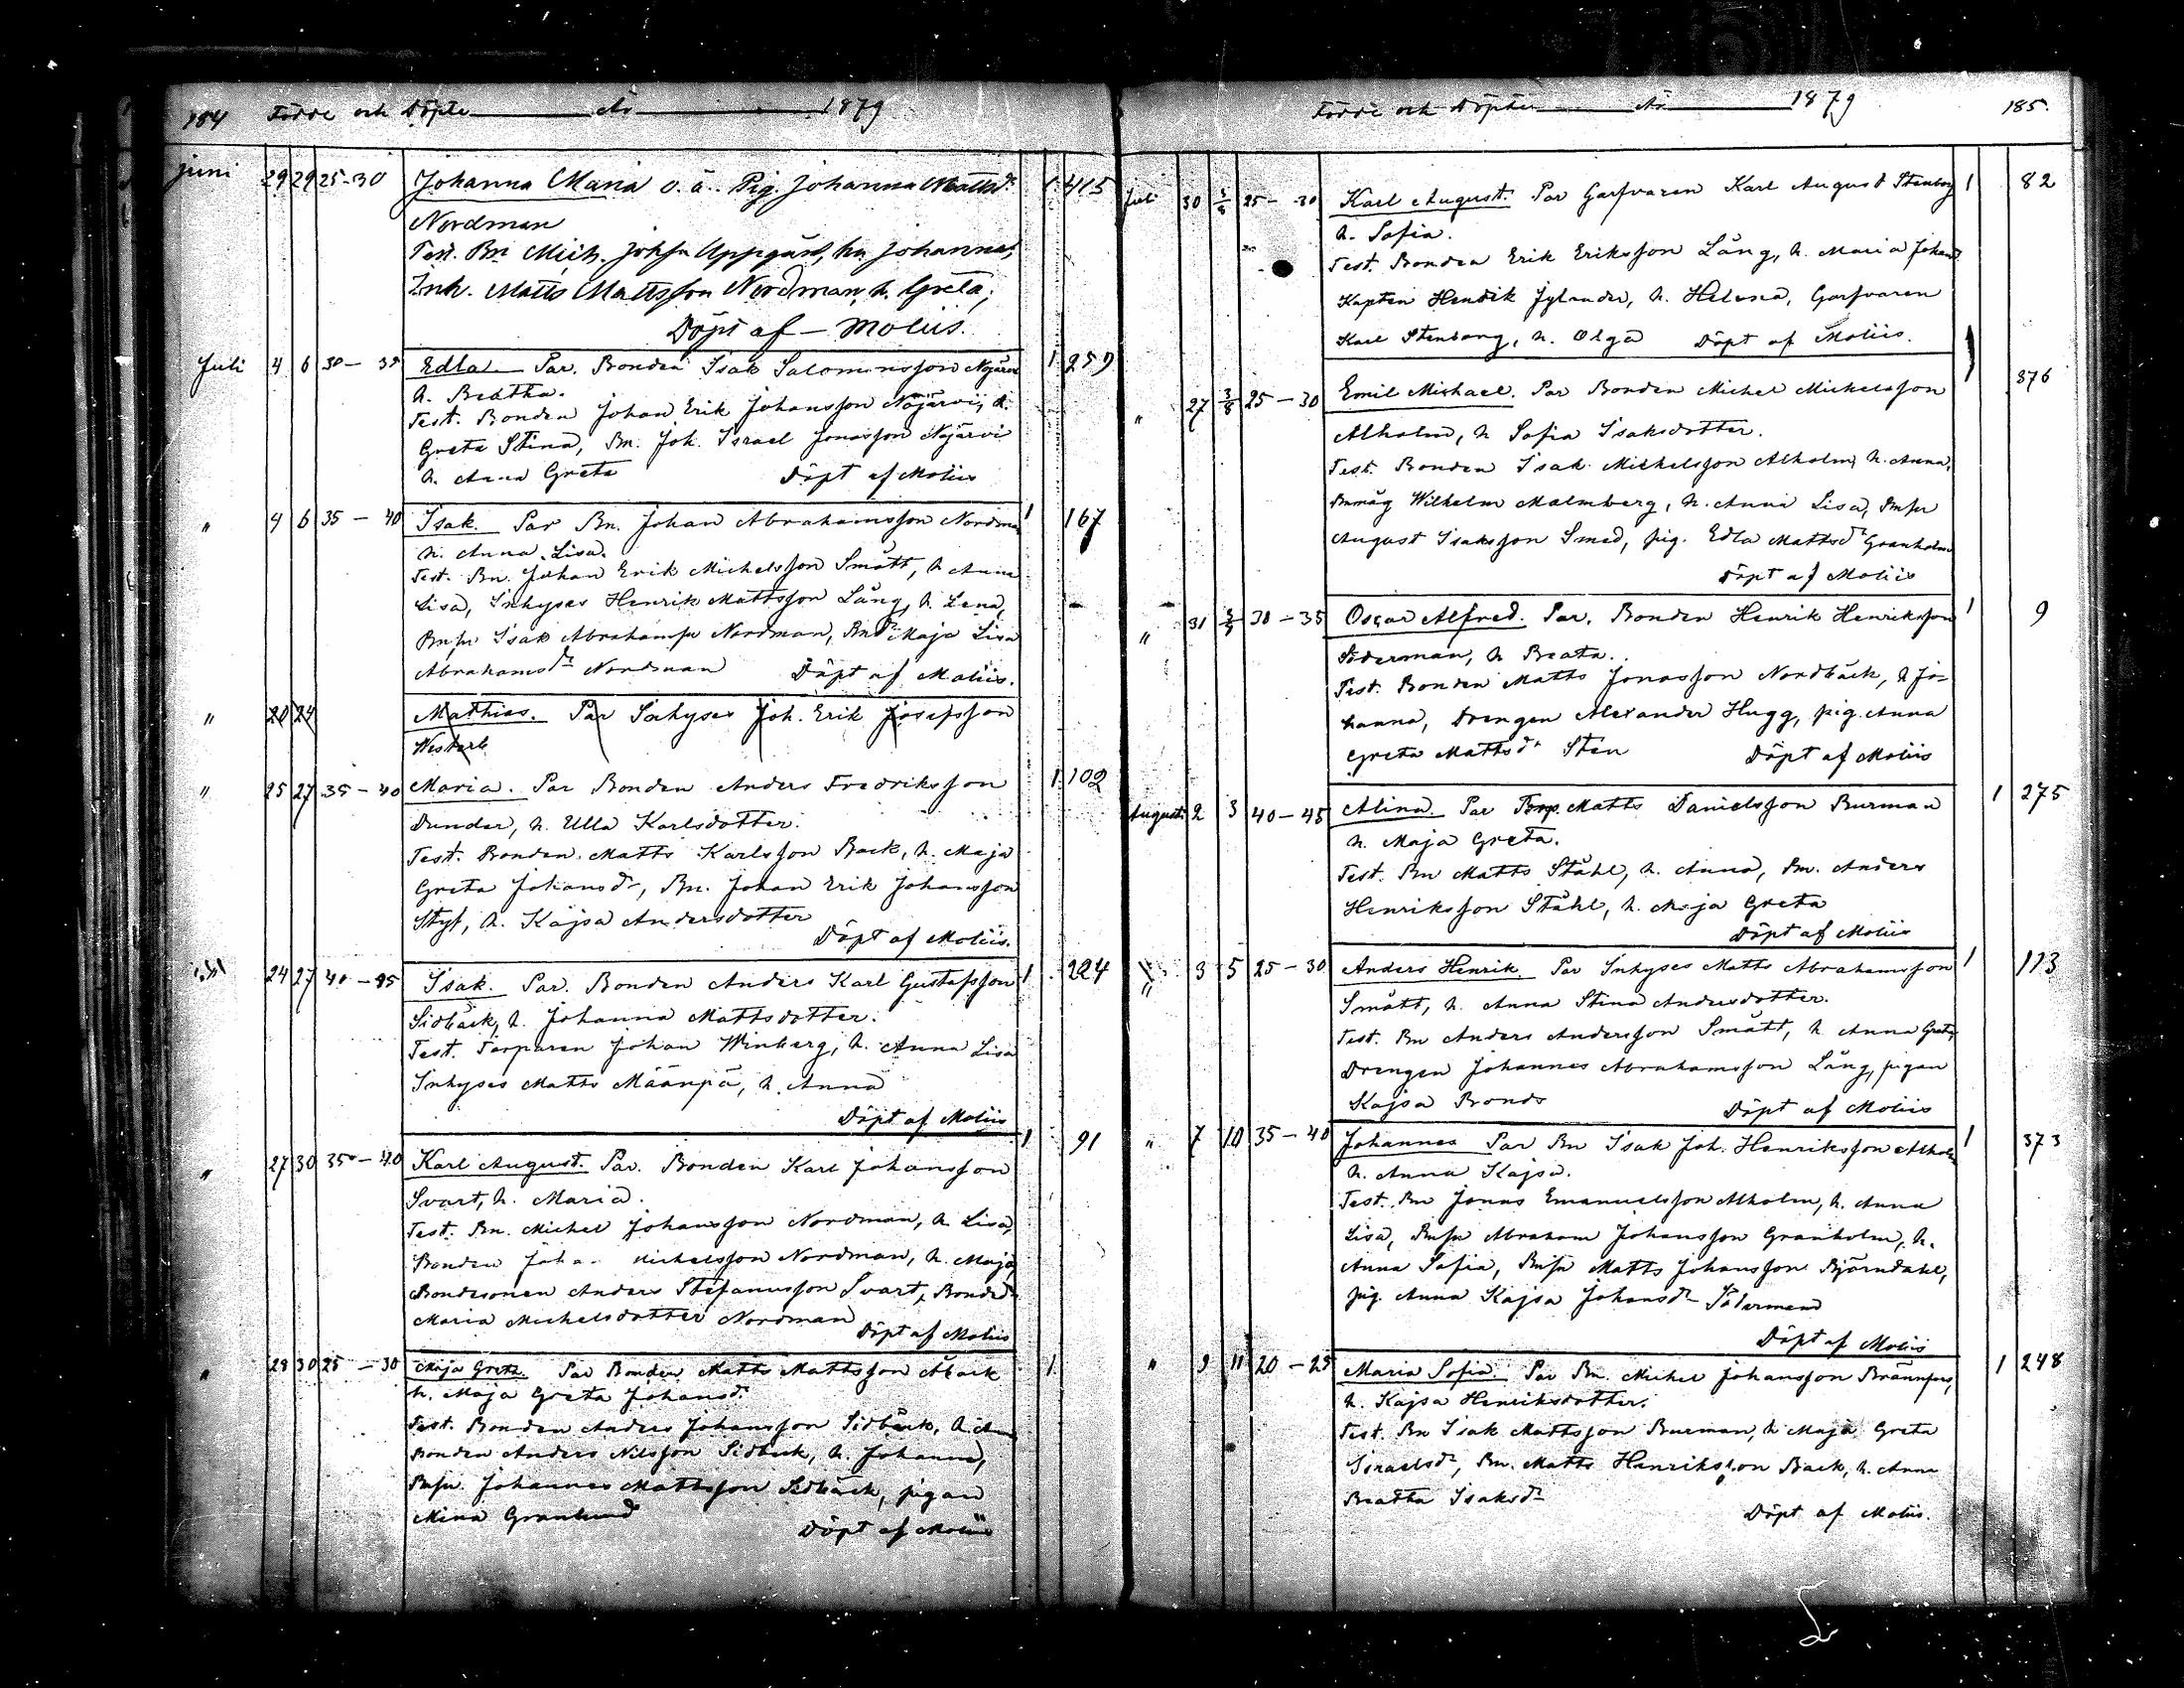 184 Födde och Döpte År 1879
Juni 29 29 25-30 Johanna Maria o. ä. Pig. Johanna Mattsdr 1 415
Nordman
Test. Bn Mich. Johsn Uppgård, hu Johanna,
Inh. Matts Mattsson Nordman, h. Greta,
Döpt af - Moliis.
Juli 4 6 30 - 35 Edla. Par. Bonden Isak Salomonsson Nojärvi 1 259
h. Beatha.
Test. Bonden Johan Erik Johansson Nojärvi, h.
Greta Stina, Bn. Joh. Israel Jonasson Nojärvi
h. Anna Greta Döpt af Moliis
" 4 6 35 - 40 Isak. Par Bn. Johan Abrahamsson Nordman 1 167
h. Anna Lisa.
Test. Bn. Johan Erik Michelsson Smått, h Anna
Lisa, Inhyses Henrik Mattsson Lång, h. Lena,
Bnsn Isak Abrahamsn Nordman, Bndr Maja Lisa
Abrahamsdr Nordman Döpt af Moliis.
" 20 24 Mathias. Par Inhyses Joh. Erik Josefsson
" 25 27 35 - 40 Maria. Par Bonden Anders Fredriksson 1 102
Dunder, h. Ulla Karlsdotter.
Test. Bonden Matts Karlsson Back, h. Maja
Greta Johansdr, Bn. Johan Erik Johansson
Styf, h. Kajsa Andersdotter
Döpt af Moliis.
24 27 40 - 45 Isak. Par. Bonden Anders Karl Gustafsson 1 224
Sidbäck, h. Johanna Mattsdotter.
Test. Torparen Johan Winberg, h. Anna Lisa
Inhyses Matts Määnpä, h. Anna
Döpt af Moliis
" 27 30 35 - 40 Karl August. Par. Bonden Karl Johansson 1 91
Svart, h. Maria.
Test. Bn. Michel Johansson Nordman, h Lisa,
Bonden Joha Michelsson Nordman, h. Maja,
Bondesonen Anders Stefanusson Svart, Bondedr
Maria Michelsdotter Nordman
Döpt af Moliis
" 28 30 25 - 30 Maja Greta. Par Bonden Matts Mattsson Åback 1
h. Maja Greta Johansdr.
Test. Bonden Anders Johansson Sidbäck, h.
Bonden Anders Nilsson Sidbäck, h. Johanna,
Bnsn. Johannes Mattsson Sidbäck, pigan
Mina Granlund
Döpt af Moliis
Födde och Döpte År 1879 185.
Juli 30 3/8 25 - 30 Karl August. Par Garfvaren Karl August Stenborg 1 82
h. Sofia.
Test. Bonden Erik Eriksson Lång, h. Maria Johansdr
Kapten Hendrik Jylander, h. Helena, Garfvaren
Karl Stenborg, h. Olga Döpt af Moliis.
" 27 3/8 25 - 30 Emil Michael. Par Bonden Michel Michelsson 1 376
Alholm, h Sofia Isaksdotter.
Test. Bonden Isak Michelsson Alholm, h. Anna,
Bnmåg Wilhelm Malmberg, h. Anna Lisa, Bnsn
August Isaksson Smed, pig. Edla Mattsdr Granholm
Döpt af Moliis
" 31 30 - 35 Oscar Alfred. Par. Bonden Henrik Henriksson 1 9
Söderman, h Beata.
Test. Bonden Matts Jonasson Nordbäck, h Jo-
hanna, Drengen Alexander Hugg, pig. Anna
Greta Mattsdr Sten Döpt af Moliis
August 2 3 40 - 45 Alina. Par Matts Danielsson Burman 1 275
h. Maja Greta.
Test. Bn Matts Ståhl, h. Anna, Bn. Anders
Henriksson Ståhl, h. Maja Greta
Döpt af Moliis
" 3 5 25 - 30 Anders Henrik. Par Inhyses Matts Abrahamsson 1 113
Smått, h. Anna Stina Andersdotter.
Test. Bn Anders Andersson Smått, h Anna Greta,
Drengen Johannes Abrahamsson Lång, pigan
Kajsa Bonds Döpt af Moliis
" 7 10 35 - 40 Johannes Par Bn Isak Joh. Henriksson Alholm 1 373
h. Anna Kajsa.
Test. Bn Jonas Emanuelsson Alholm, h. Anna
Lisa, Bnsn Abraham Johansson Granholm, h.
Anna Sofia, Bnsn Matts Johansson Björndahl,
pig. Anna Kajsa Johansdr Söderman
Döpt af Moliis
" 9 11 20 - 25 Maria Sofia. Par Bn. Michel Johansson Brännfors, 1 248
h. Kajsa Henriksdotter.
Test. Bn Isak Mattsson Burman, h Maja Greta
Israelsdr, Bn. Matts Henriksson Back, h. Anna
Beatta Isaksdr
Döpt af Moliis.